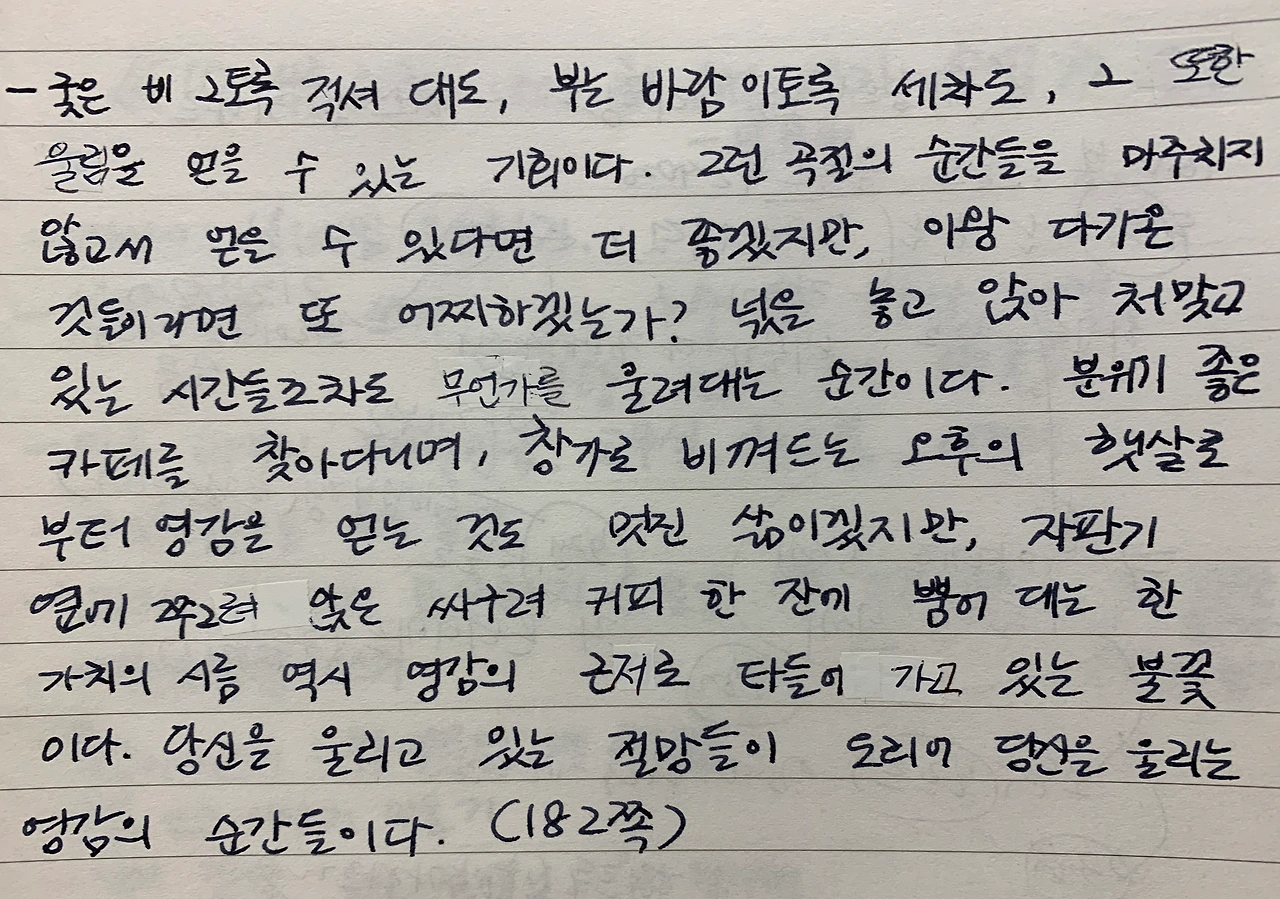 - 궂은 비 그토록 적셔 대도, 부는 바람 이토록 세차도, 그 또한
울림을 얻을 수 있는 기회이다. 그런 곡절의 순간들을 마주치지
않고서 얻을 수 있다면 더 좋겠지만, 이왕 다가온
것들이라면 또 어찌하겠는가? 넋을 놓고 앉아 처맞고
있는 시간들조차도 무언가를 울려대는 순간이다. 분위기 좋은
카페를 찾아다니며, 창가로 비껴드는 오후의 햇살로
부터 영감을 얻는 것도 멋진 삶이겠지만, 자판기
옆에 쭈그려 앉은 싸구려 커피 한 잔에 뿜어 대는 한
가치의 시름 역시 영감의 근저로 타들어 가고 있는 불꽃
이다. 당신을 울리고 있는 절망들이 도리어 당신을 울리는
영감의 순간들이다. (182쪽)